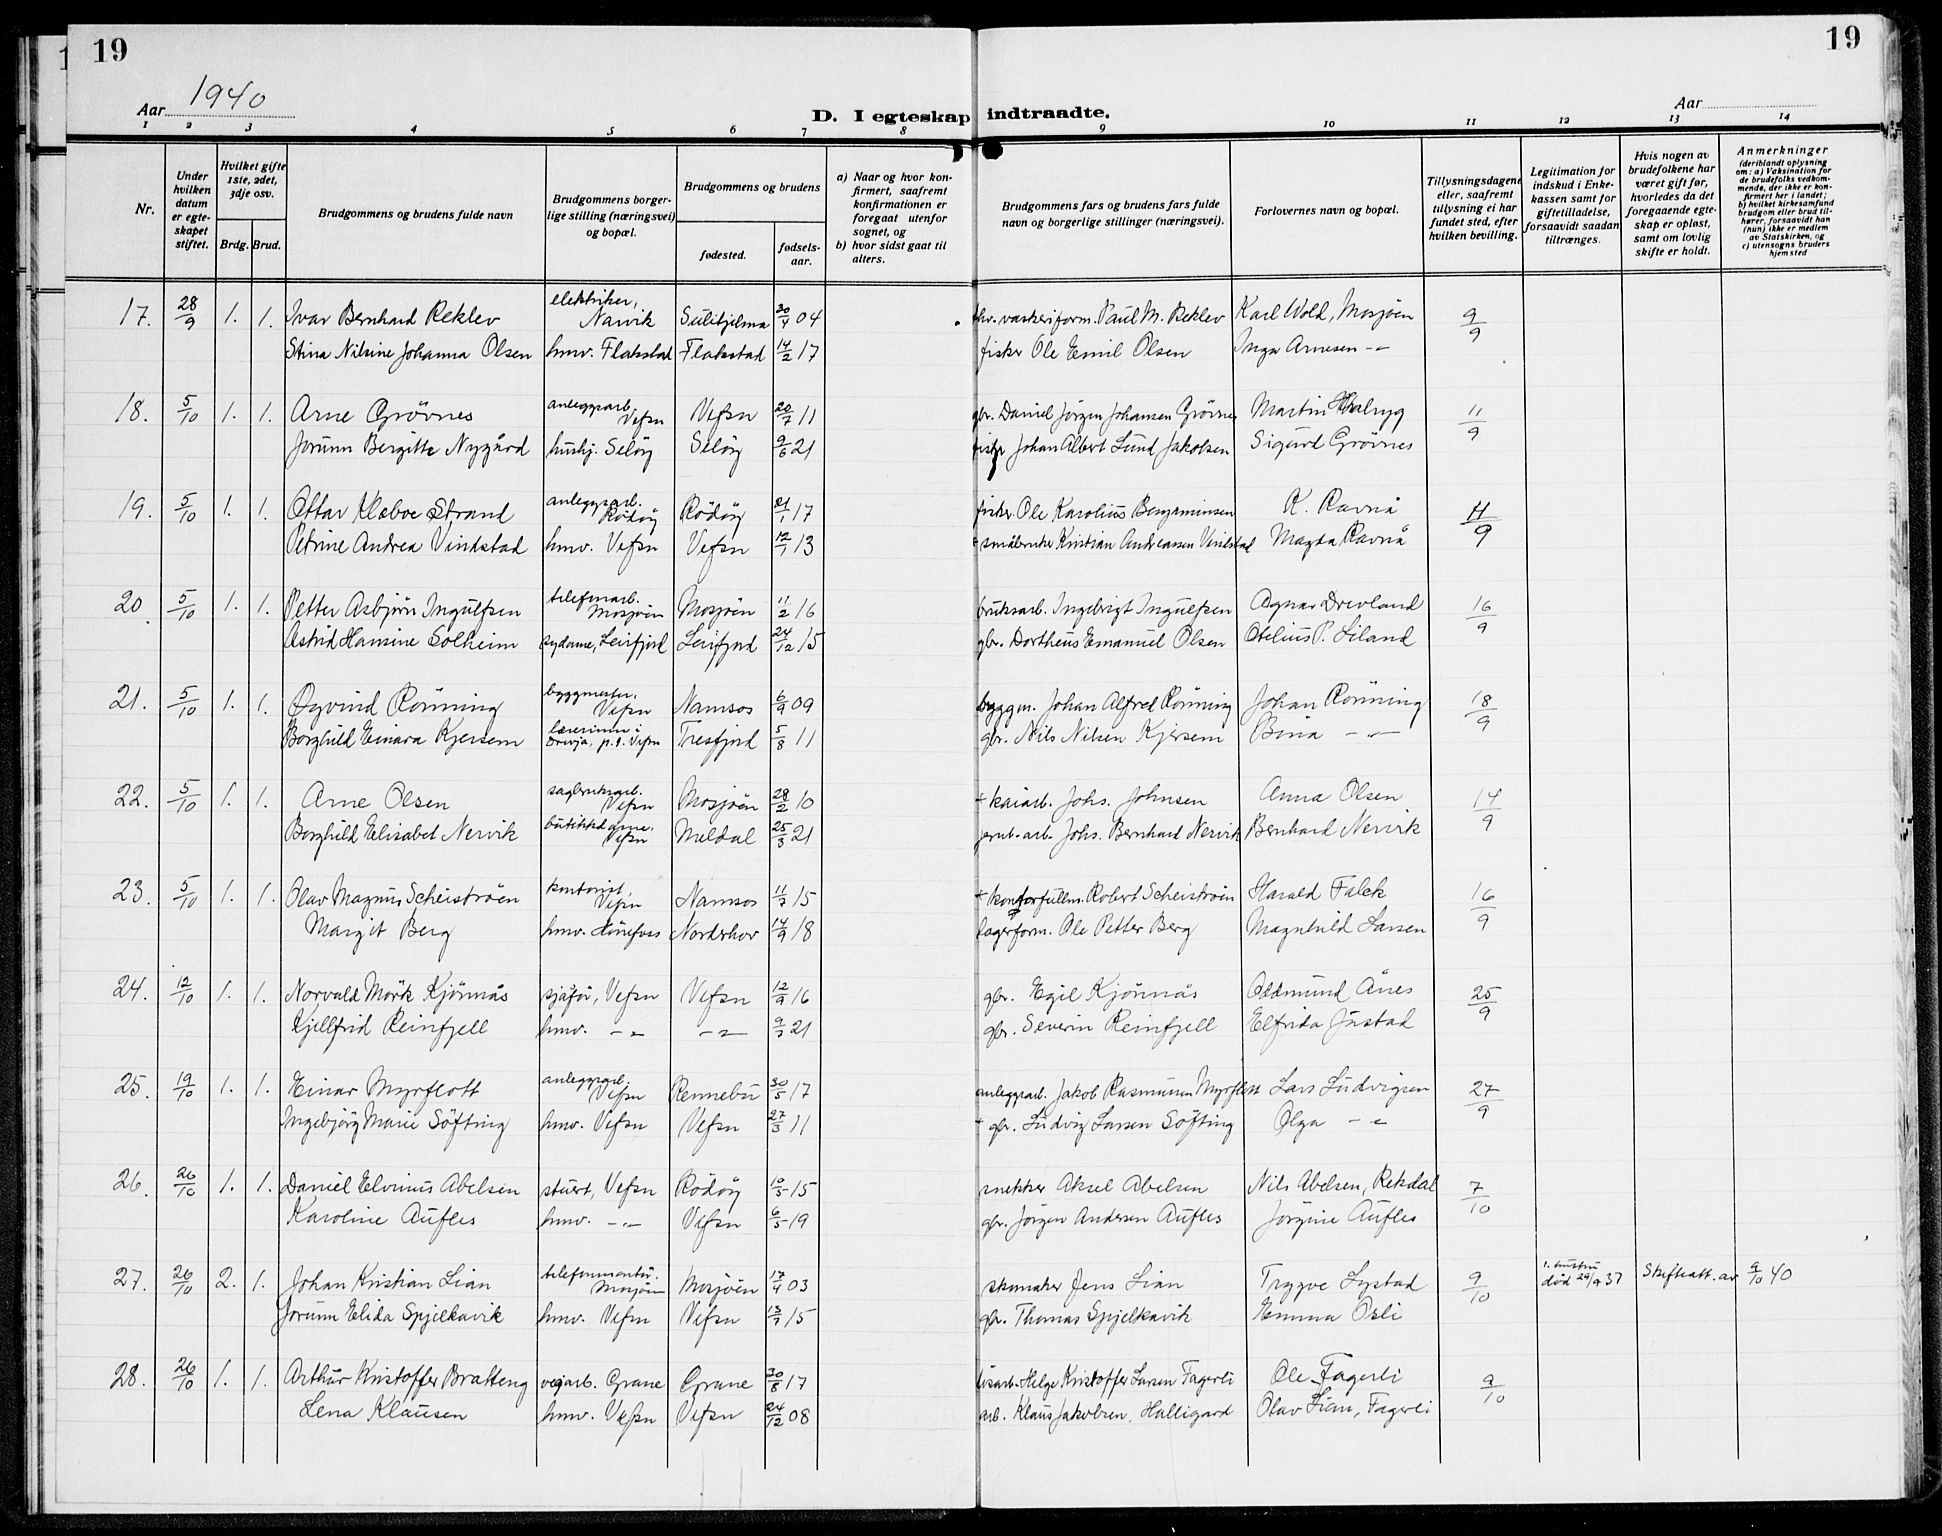 19
19
Aar 1940
D. I egteskap indtraadte.
Aar
1 2 3 4 5 6 7 8 9 10 11 12 13 14
Nr.
Under hvilken datum er egteskapet stiftet.
Hvilket gifte 1ste, 2det, 3dje osv.
Brdg. Brud.
Brudgommens og brudens fulde navn
Brudgommens borgerlige stilling (næringsvei) og bopæl.
Brudgommens og brudens
fødested.
fødselsaar.
a) Naar og hvor konfirmert, saafremt konfirmationen er foregaat utenfor sognet, og
b) hvor sidst gaat til alters.
Brudgommens fars og brudens fars fulde navn og borgerlige stillinger (næringsvei).
Forlovernes navn og bopæl.
Tillysningsdagene eller, saafremt tillysning ei har fundet sted, efter hvilken bevilling.
Legitimation for indskud i Enkekassen samt for giftetilladelse, forsaavidt saadan tiltrænges.
Hvis nogen av brudefolkene har været gift før, hvorledes da det foregaaende egteskap er opløst, samt om lovlig skifte er holdt.
Anmerkninger (deriblandt oplysning om: a) Vaksination for de brudefolks vedkommende, der ikke er konfirmert her i landet; b) hvilket kirkesamfund brudgom eller brud tilhører, forsaavidt han (hun) ikke er medlem av Statskirken, og c) utensogns bruders hjemsted
17. 28/9 1. 1. Ivar Bernhard Reklev elektriker, Narvik Sulitjelma 30/4 04 fhv. vaskeriform. Paul M. Reklev Karl Wold, Mosjøen 9/9
Stina Nilsine Johanna Olsen hmv. Flakstad Flakstad 14/2 17 fisker Ole Emil Olsen Inga Arnesen -"-
18. 5/10 1. 1. Arne Grövnes anleggsarb. Vefsn Vefsn 20/7 11 gbr. Daniel Jörgen Johansen Grövnes Martin 11/9
Jorunn Bergitte Nygård hushj. Seløy Seløy 9/6 21 fisker Johan Albert Lund Jakobsen Sigurd Grövnes
19. 5/10 1. 1. Ottar Klæboe Strand anleggsarb. Rödöy Rödöy 21/1 17 fisker Ole Karolius Benjaminsen K. Ravnå 11/9
Petrine Andrea Vindstad hmv. Vefsn Vefsn 12/1 13 + småbruker Kristian Andreassen Vindstad Magda Ravnå
20. 5/10 1. 1. Petter Asbjörn Ingulfsen telefonarb. Mosjøen Mosjøen 11/2 16 bruksarb. Ingebrigt Ingulfsen Agnar Drevland 16/9
Astrid Hansine Solheim sydame, Leirfjord Leirfjord 24/12 15 gbr. Dortheus Emanuel Olsen Otelius P. Liland
21. 5/10 1. 1. Øyvind Rönning byggmester, Vefsn Namsos 6/9 09 byggm. Johan Alfred Rönning Johan Rönning 18/9
Borghild Einara Kjersem lærerinne i Drevja, p.t. Vefsn Tresfjord 5/8 11 gbr. Nils Nilsen Kjersem Bina -"-
22. 5/10 1. 1. Arne Olsen sagbruksarb. Vefsn Mosjøen 28/2 10 + kaiarb. Johs. Johnsen Anna Olsen 14/9
Borghild Elisabet Nervik butikkdame, Vefsn Meldal 25/3 21 jernb.arb. Johs. Bernhard Nervik Bernhard Nervik
23. 5/10 1. 1. Olav Magnus Scheiströen kontorist, Vefsn Namsos 11/7 15 + kontorfullm. Robert Scheiströen Harald Falck 16/9
Margit Berg hmv. Hönefoss Norderhov 14/9 18 lagerform. Ole Petter Berg Magnhild Larsen
24. 12/10 1. 1. Norvald Mörk Kjönnås sjåfør, Vefsn Vefsn 12/9 16 gbr. Egil Kjönnås Oddmund Ånes 25/9
Kjellfrid Reinfjell hmv. -"- -"- 9/3 21 gbr. Severin Reinfjell Elfrida Justad
25. 19/10 1. 1. Einar Myrflott anleggsarb. Vefsn Rennebu 30/5 17 anleggsarb. Jakob Rasmussen Myrflott Lars Ludvigsen 27/9
Ingebjörg Marie Söfting hmv. Vefsn Vefsn 27/3 11 + gbr. Ludvig Larsen Söfting Olga -"-
26. 26/10 1. 1. Daniel Elvinus Abelsen stuert, Vefsn Rödöy 10/5 15 snekker Aksel Abelsen Nils Abelsen, Rekdal 7/10
Karoline Aufles hmv. -"- Vefsn 6/5 19 gbr. Jörgen Andersen Aufles Jörgine Aufles
27. 26/10 2. 1. Johan Kristian Lian telefonmontör, Mosjøen Mosjøen 17/4 03 skomaker Jens Lian Trygve Lystad 9/10 1. hustru död 29/9 37 Skifteatt. av 9/10 40
Jorunn Elida Spjelkavik hmv. Vefsn Vefsn 13/7 15 gbr. Thomas Spjelkavik Emma Osli
28. 26/10 1. 1. Arthur Kristoffer Bratteng vegarb. Grane Grane 30/8 17 Helge Kristoffer Larsen Fagerli Ole Fagerli 9/10
Lena Klausen hmv. Vefsn Vefsn 24/12 08 arb. Klaus Jakobsen, Halligard Olav Lian, Fagerli